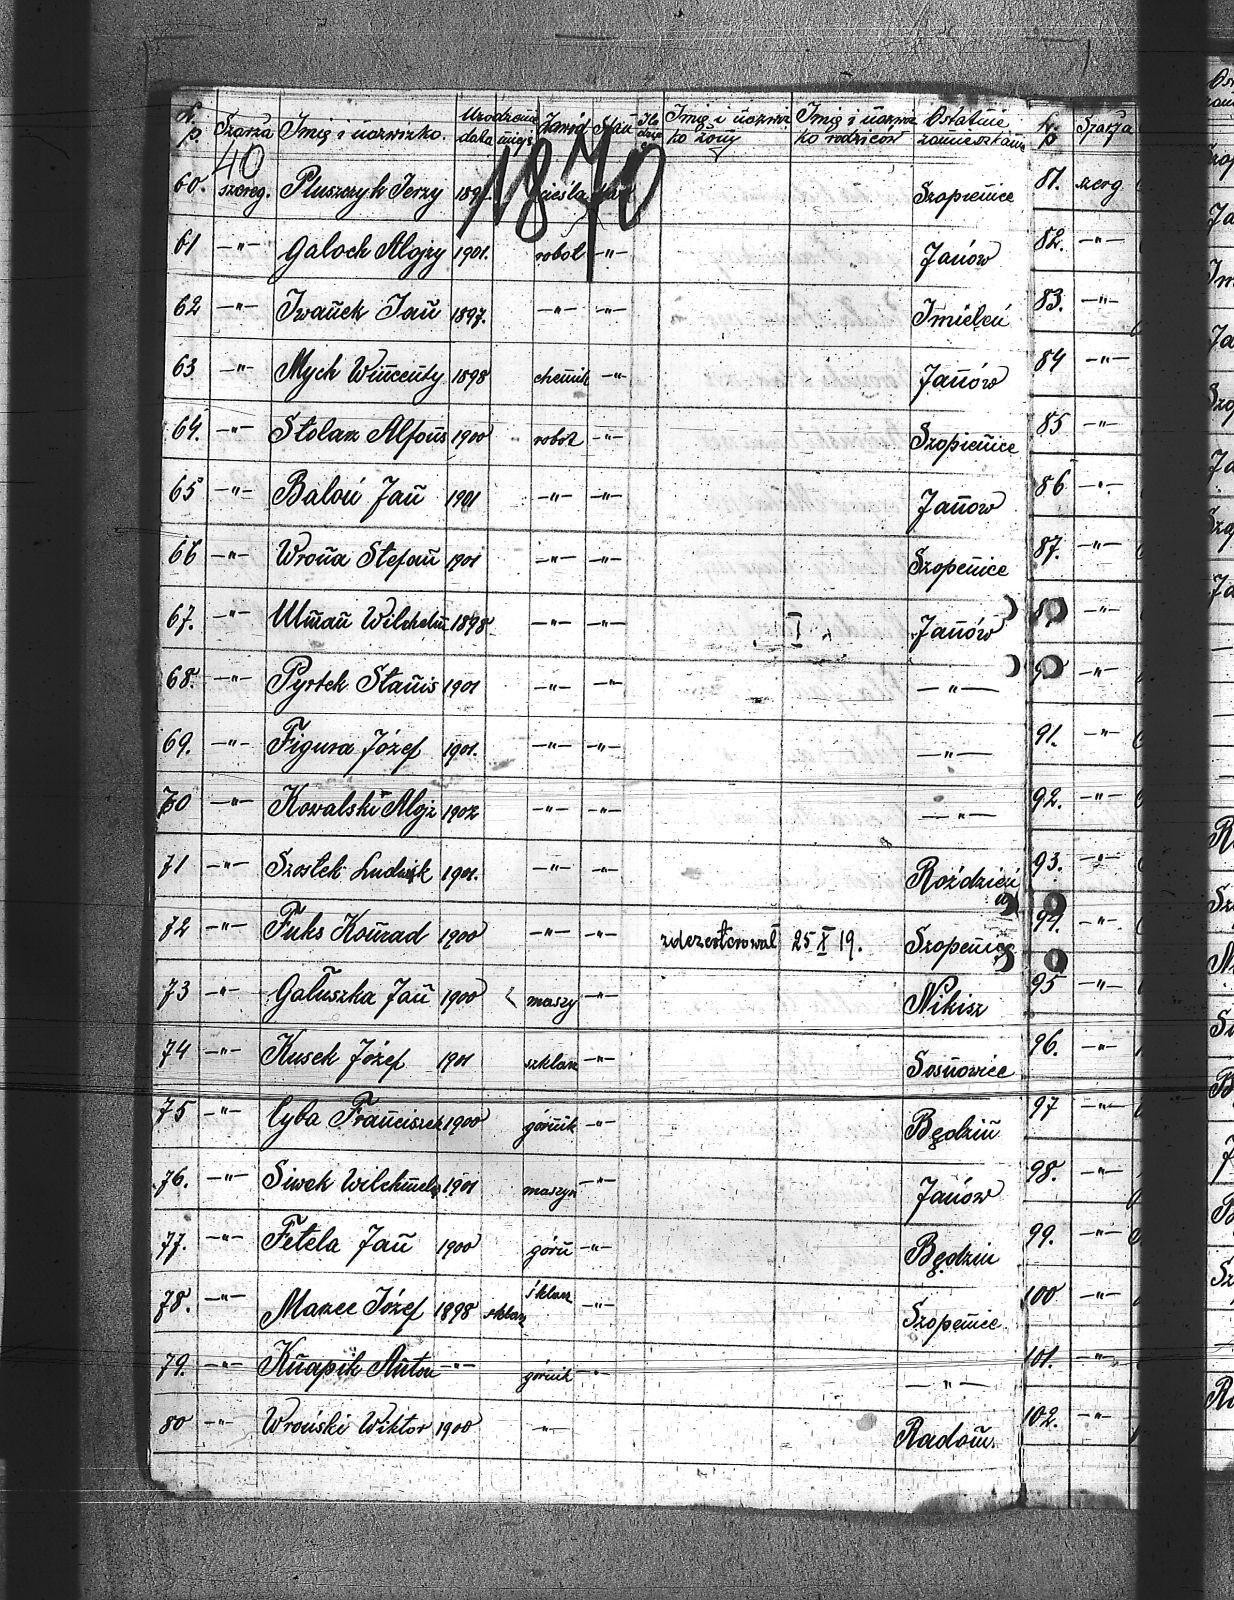 L. p. Szarża Imię i nazwizko. Urodzenie data miejs. Zawód Stan Ilo dzie Imię i nazwiz ko żony Imię i nazwiz ko rodziców Ostatnie zamieszkanie L. p Szarża
40
1870
60. szereg. Pluszczyk Jerzy cieśla Szopienice 81. szerg
61 -"- Galoch Alojzy 1901. robot -"- Janów 82. -"-
62 -"- Iwanek Jan 1897. -"- -"- Imieleń 83. -"-
63 -"- Mych Wincenty 1898 chemik -"- Janów 84 -"-
64. -"- Stolarz Alfons 1900 robot -"- Szopienice 85 -"-
65 -"- Baloń Jan 1901 -"- -"- Janow 86 -"-
66 -"- Wrona Stefan 1901 -"- -"- Szopenice 87. -"-
67. -"- Ulman Wilchelm 1898 -"- -"- I Janów -"-
68. -"- Pyrtek Stanis 1901 -"- -"- -"- -"-
69. -"- Figura Józef 1901. -"- -"- -"- 91. -"-
70 -"- Kowalski Alojz 1902 -"- -"- -"- 92. -"-
71 -"- Szostek Ludwik 1901. -"- -"- Roździeń 93. -"-
72 -"- Fuks Konrad 1900 -"- -"- zdezerterował 25 X 19. Szopenice 94. -"-
73 -"- Gałuszka Jan 1900 maszy -"- Nikisz 95 -"-
74 -"- Kusek Józef 1901 szklarz -"- Sosnowiec 96. -"-
75 -"- Cyba Franciszek 1900 górnik -"- Będzin 97 -"-
76. -"- Siwek Wilchmelm 1901 maszyn -"- Janów 98. -"-
77. -"- Fetela Jan 1900 górn -"- Będzin 99. -"-
78. -"- Marzec Józef 1898 szklarz szklarz -"- Szopenice 100 -"-
79. -"- Knapik Anton -"- górnik -"- -"- 101. -"-
80 -"- Wroński Wiktor 1900 -"- Radom. 102. -"-